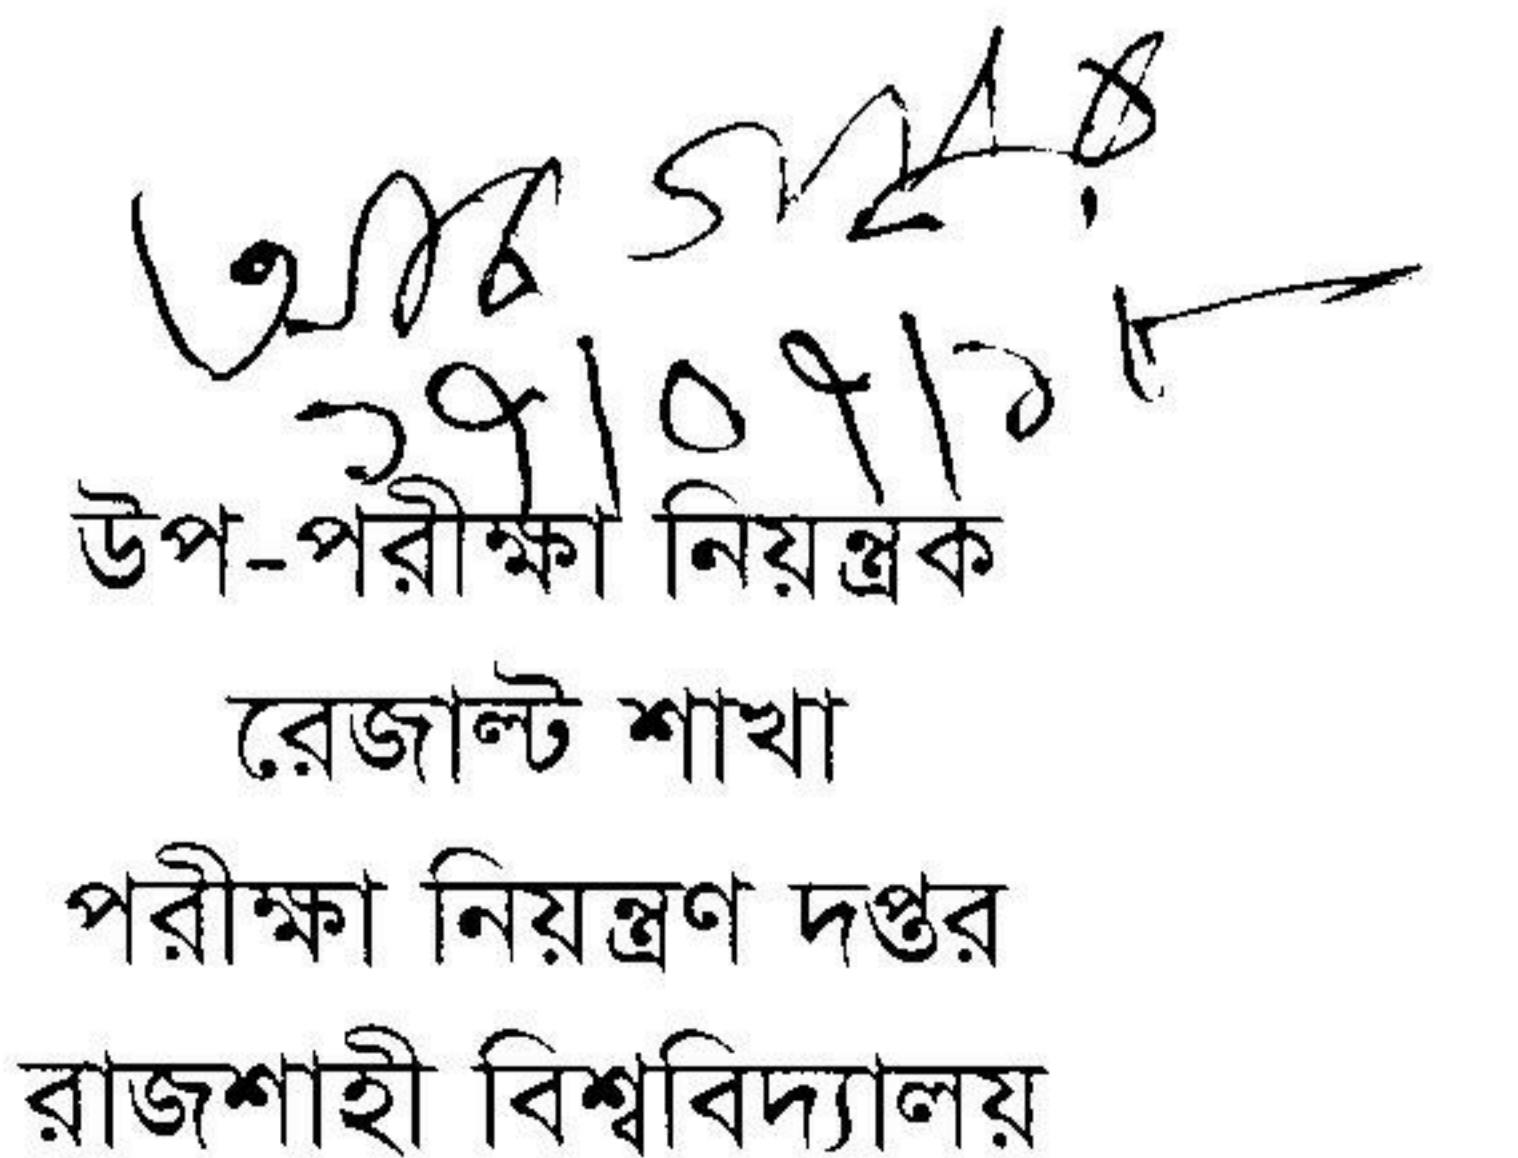 ১৭/০৭/১৮
উপ-পরীক্ষা নিয়ন্ত্রক
রেজাল্ট শাখা
পরীক্ষা নিয়ন্ত্রণ দপ্তর
রাজশাহী বিশ্ববিদ্যালয়